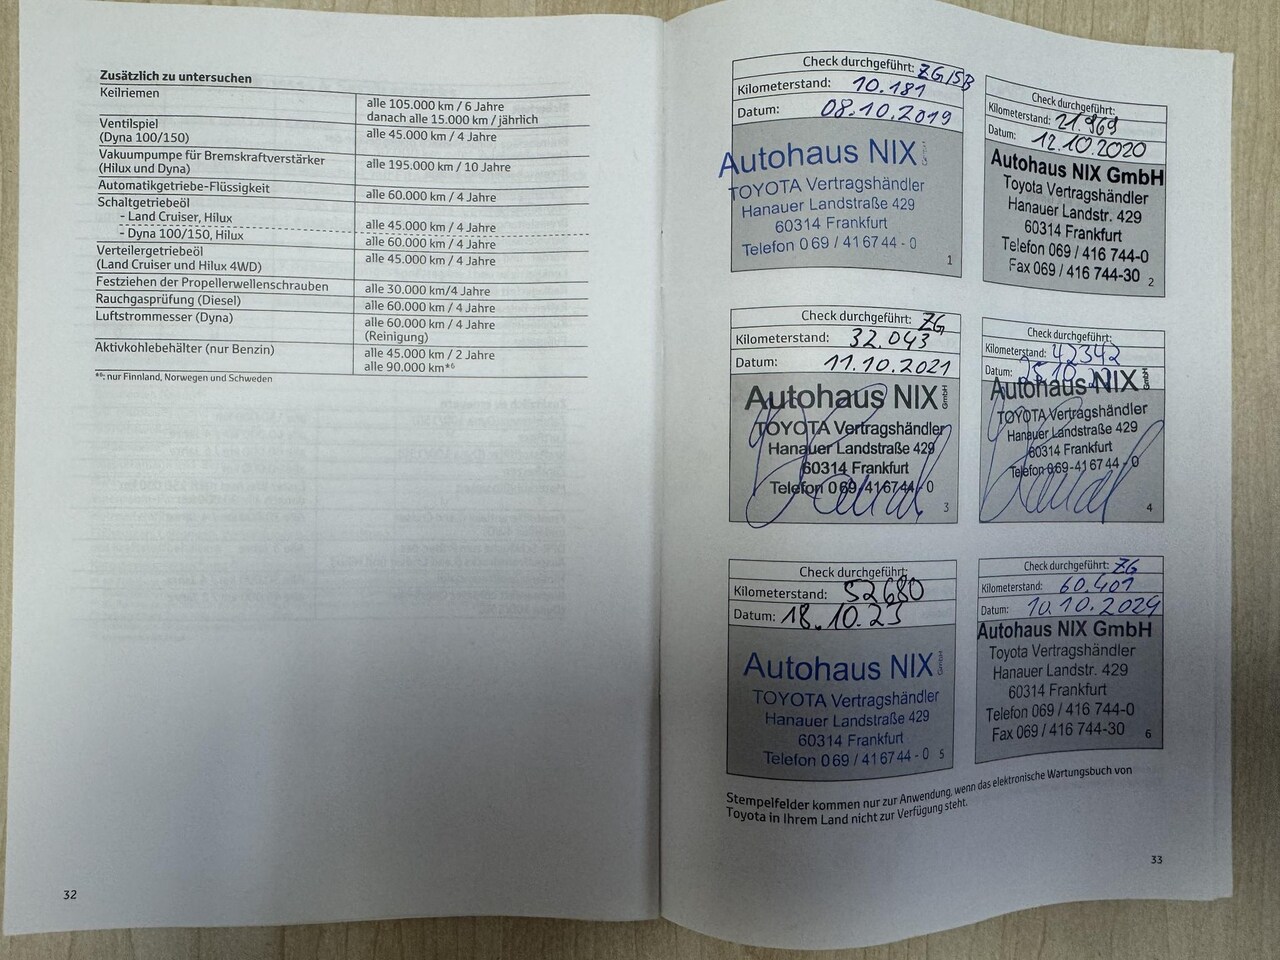 Zusätzlich zu untersuchen
Keilriemen
alle 105.000 km / 6 Jahre
danach alle 15.000 km / jährlich
Ventilspiel
(Dyna 100/150)
alle 45.000 km / 4 Jahre
Vakuumpumpe für Bremskraftverstärker
(Hilux und Dyna)
alle 195.000 km / 10 Jahre
Automatikgetriebe-Flüssigkeit
alle 60.000 km / 4 Jahre
Schaltgetriebeöl
- Land Cruiser, Hilux
alle 45.000 km / 4 Jahre
- Dyna 100/150, Hilux
alle 60.000 km / 4 Jahre
Verteilergetriebeöl
(Land Cruiser und Hilux 4WD)
alle 45.000 km / 4 Jahre
Festziehen der Propellerwellenschrauben
alle 30.000 km/4 Jahre
Rauchgasprüfung (Diesel)
alle 60.000 km / 4 Jahre
Luftstrommesser (Dyna)
alle 60.000 km / 4 Jahre
(Reinigung)
Aktivkohlebehälter (nur Benzin)
alle 45.000 km / 2 Jahre
alle 90.000 km*⁶
*⁶: nur Finnland, Norwegen und Schweden
32
Check durchgeführt: ZG/SB
Kilometerstand: 10.181
Datum: 08.10.2019
Autohaus NIX
TOYOTA Vertragshändler
Hanauer Landstraße 429
60314 Frankfurt
Telefon 0 69 / 41 67 44 - 0
1
Check durchgeführt:
Kilometerstand: 21.969
Datum: 12.10.2020
Autohaus NIX GmbH
Toyota Vertragshändler
Hanauer Landstr. 429
60314 Frankfurt
Telefon 069 / 416 744-0
Fax 069 / 416 744-30
2
Check durchgeführt: ZG
Kilometerstand: 32.043
Datum: 11.10.2021
Autohaus NIX GmbH
TOYOTA Vertragshändler
Hanauer Landstraße 429
60314 Frankfurt
Telefon 0 69-41 67 44 - 0
3
Check durchgeführt:
Kilometerstand: 42342
Datum: 25.10.
Autohaus NIX GmbH
TOYOTA Vertragshändler
Hanauer Landstraße 429
60314 Frankfurt
Telefon 0 69-41 67 44 - 0
4
Check durchgeführt:
Kilometerstand: 52680
Datum: 18.10.23
Autohaus NIX GmbH
TOYOTA Vertragshändler
Hanauer Landstraße 429
60314 Frankfurt
Telefon 0 69 / 41 67 44 - 0
5
Check durchgeführt: ZG
Kilometerstand: 60.401
Datum: 10.10.2024
Autohaus NIX GmbH
Toyota Vertragshändler
Hanauer Landstr. 429
60314 Frankfurt
Telefon 069 / 416 744-0
Fax 069 / 416 744-30
6
Stempelfelder kommen nur zur Anwendung, wenn das elektronische Wartungsbuch von
Toyota in Ihrem Land nicht zur Verfügung steht.
33